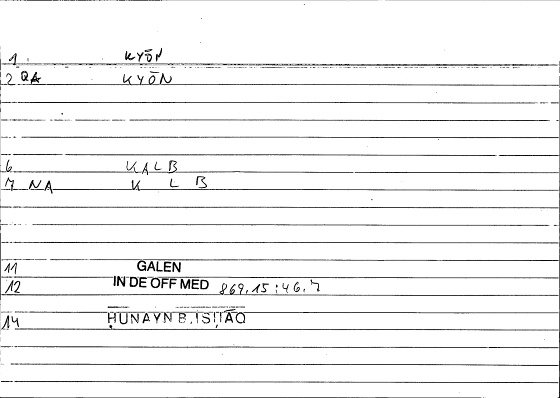 1 KYŌN
2 QA KYŌN
6 KALB
7 NA K L B
11 GALEN
12 IN DE OFF MED 869,15 : 46,7
14 ḤUNAYN B. ISḤĀQ